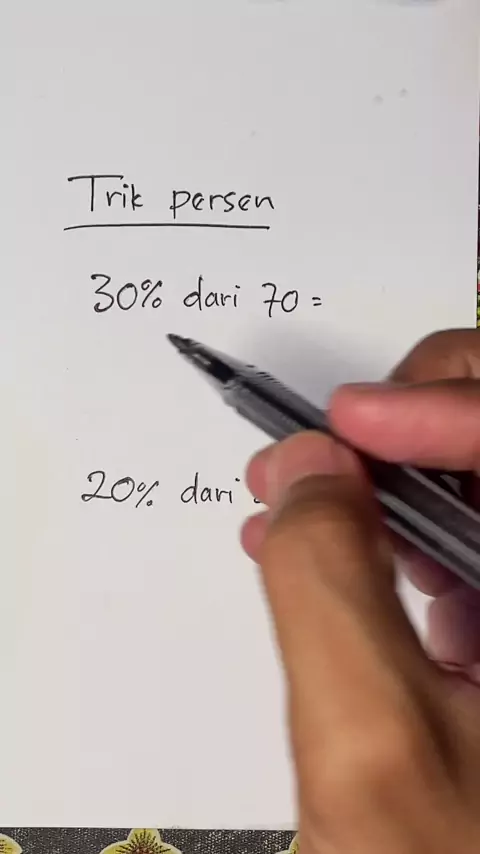 Trik persen
30% dari 70 =
20% dari